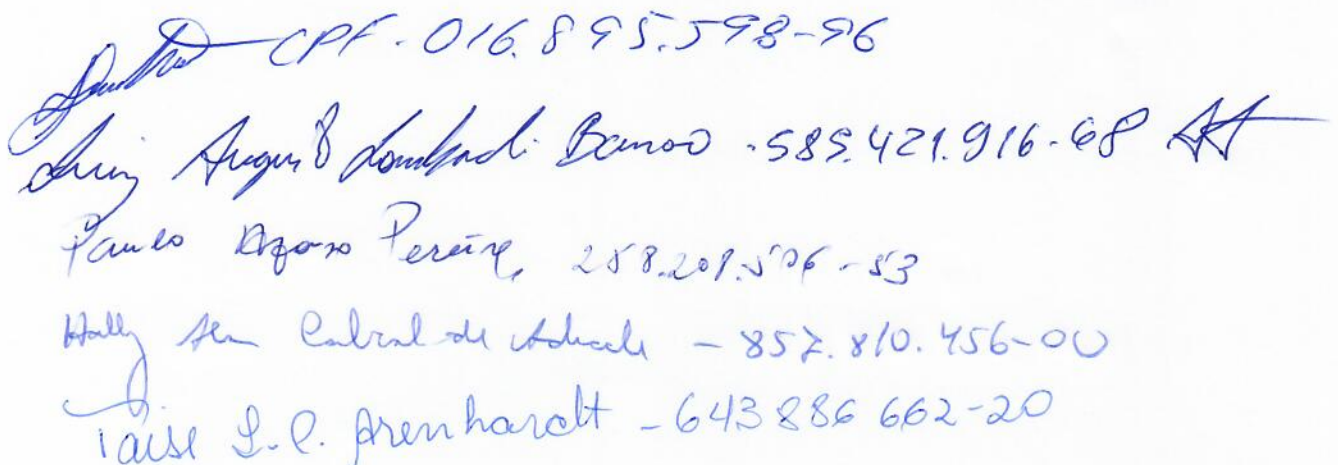 CPF - 016.895.598-96
Luiz Augusto Lombardi Barroso - 585.421.916-68
Paulo Afonso Pereira, 258.201.506-53
Cabral de Andrade - 857.810.456-00
Taise L.C. Arenhardt - 643 886 662-20